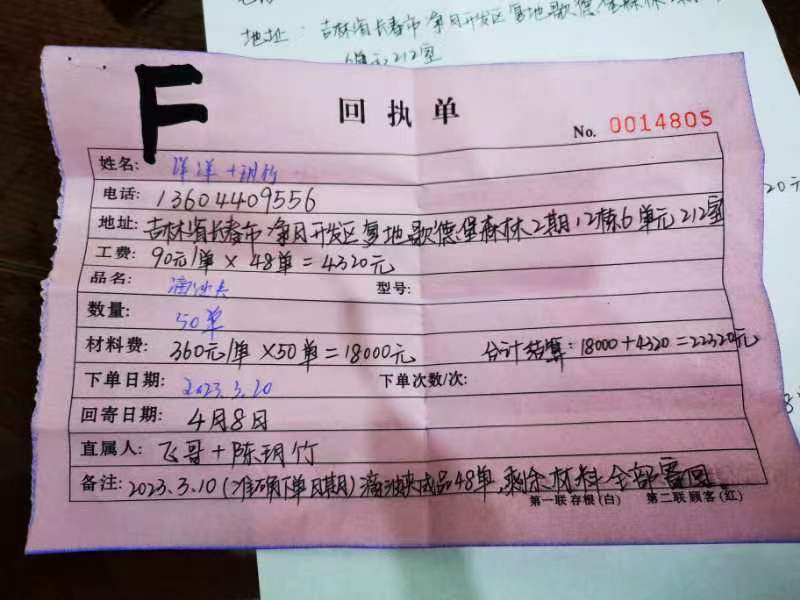 地址：吉林省长春市净月开发区复地歌德堡森林
6单元212室
F
回执单
No. 0014805
姓名： 洋洋+玥竹
电话： 13604409556
地址： 吉林省长春市净月开发区复地歌德堡森林2期12栋6单元212室
工费： 90元/单×48单=4320元
品名： 滴油夹 型号：
数量： 50单
材料费： 360元/单×50单=18000元 合计结算：18000+4320=22320元
下单日期： 2023.3.20 下单次数/次：
回寄日期： 4月8日
直属人： 飞哥+陈玥竹
备注： 2023.3.10(准确下单日期)滴油夹成品48单,剩余材料全部寄回
第一联存根(白) 第二联顾客(红)
20元